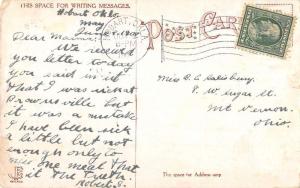 THIS SPACE FOR WRITING MESSAGES.
Hobart Okla
June
POST CARD
PM
Dear Mamma
We received
you letter today
you said in it
that I was sick at
Brownsville but
it was a mistake
I have been sick
a little but not
enough only to
miss one meal that
it the Truth
Robert S.
Miss C. E. Salisbury
P. W. Sugar St.
Mt Vernon.
Ohio.
The space for Address only.